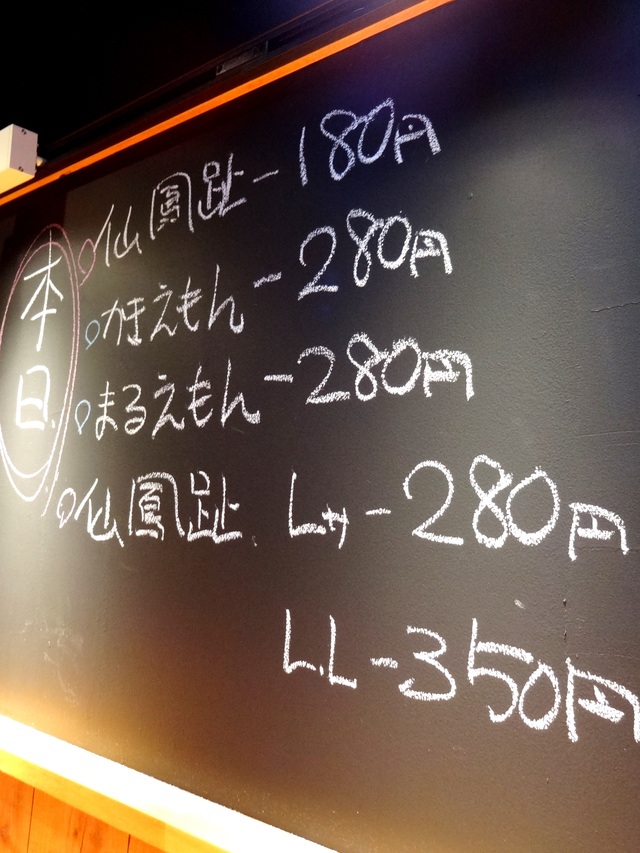 本日
仙鳳趾 - 180円
かきえもん - 280円
まるえもん - 280円
仙鳳趾 Lサイズ - 280円
LL - 350円